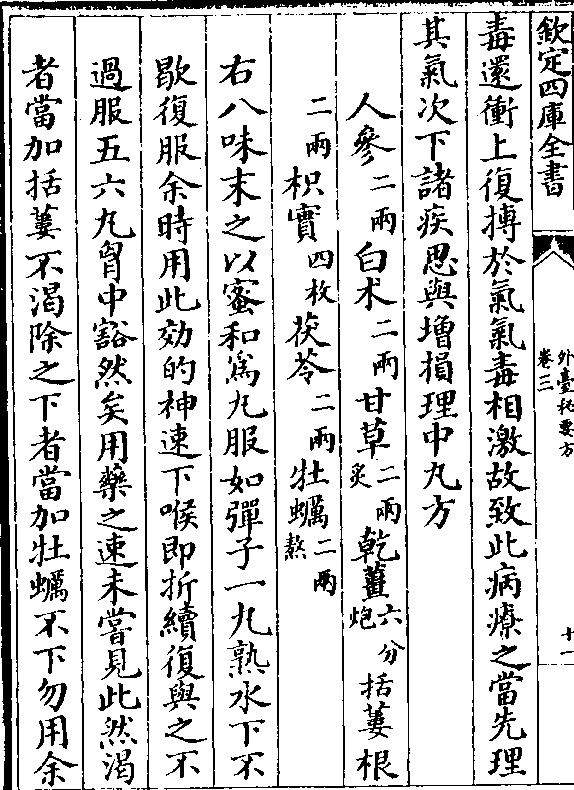 欽定四庫全書
外臺秘要方
卷三
十一
毒還衝上復搏於氣氣毒相激故致此病療之當先理
其氣次下諸疾思與增損理中丸方
人參二兩白术二兩甘草二兩炙乾薑六分炮括蔞根
二兩枳實四枚茯苓二兩牡蠣二兩熬
右八味末之以蜜和爲丸服如彈子一丸熟水下不
歇復服余時用此効的神速下喉即折續復與之不
過服五六丸胷中豁然矣用藥之速未嘗見此然渴
者當加括蔞不渴除之下者當加牡蠣不下勿用余